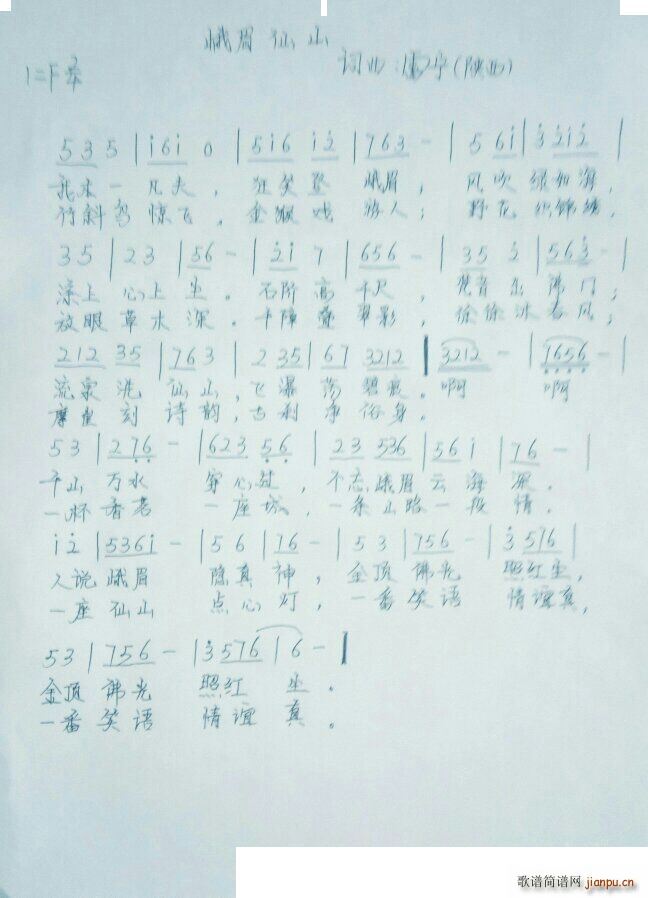 峨眉仙山
1=F 2/4 词曲:宁(陕西)
5 3 5 | i 6 i 0 | 5 i 6 i 2 | 7 6 3 - | 5 6 i | 3 2 i 2 |
我本一凡夫,狂笑登峨眉,风吹绿如海,
竹斜鸟惊飞。金猴戏游人;野花织锦绣,
3 5 | 2 3 | 5 6 - | 2 i 7 | 6 5 6 - | 3 5 2 | 5 6 3 - |
漾上心上尘。石阶高千尺,观音出佛门;
放眼草木深。千障叠翠影,徐徐沐春风;
2 1 2 3 5 | 7 6 3 | 2 3 5 | 6 7 3 2 1 2 | 3 2 1 2 - | 7 6 5 6 - |
流泉洗仙山,飞瀑荡碧痕。啊 啊
摩崖刻诗韵,古刹净俗身。
5 3 | 2 7 6 - | 6 2 3 5 6 | 2 3 5 3 6 | 5 6 i | 7 6 - |
千山万水 穿心过,不忘峨眉云海深。
一杯香茗 一座城,一条山路一段情。
i 2 | 5 3 6 i - | 5 6 | 7 6 - | 5 3 | 7 5 6 - | 3 5 7 6 |
人说峨眉 隐真神,金顶佛光 照红尘,
一座仙山 点心灯,一番笑语 情谊真,
5 3 | 7 5 6 - | 3 5 7 6 | 6 - |
金顶佛光 照红尘。
一番笑语 情谊真。
歌谱简谱网
jianpu.cn